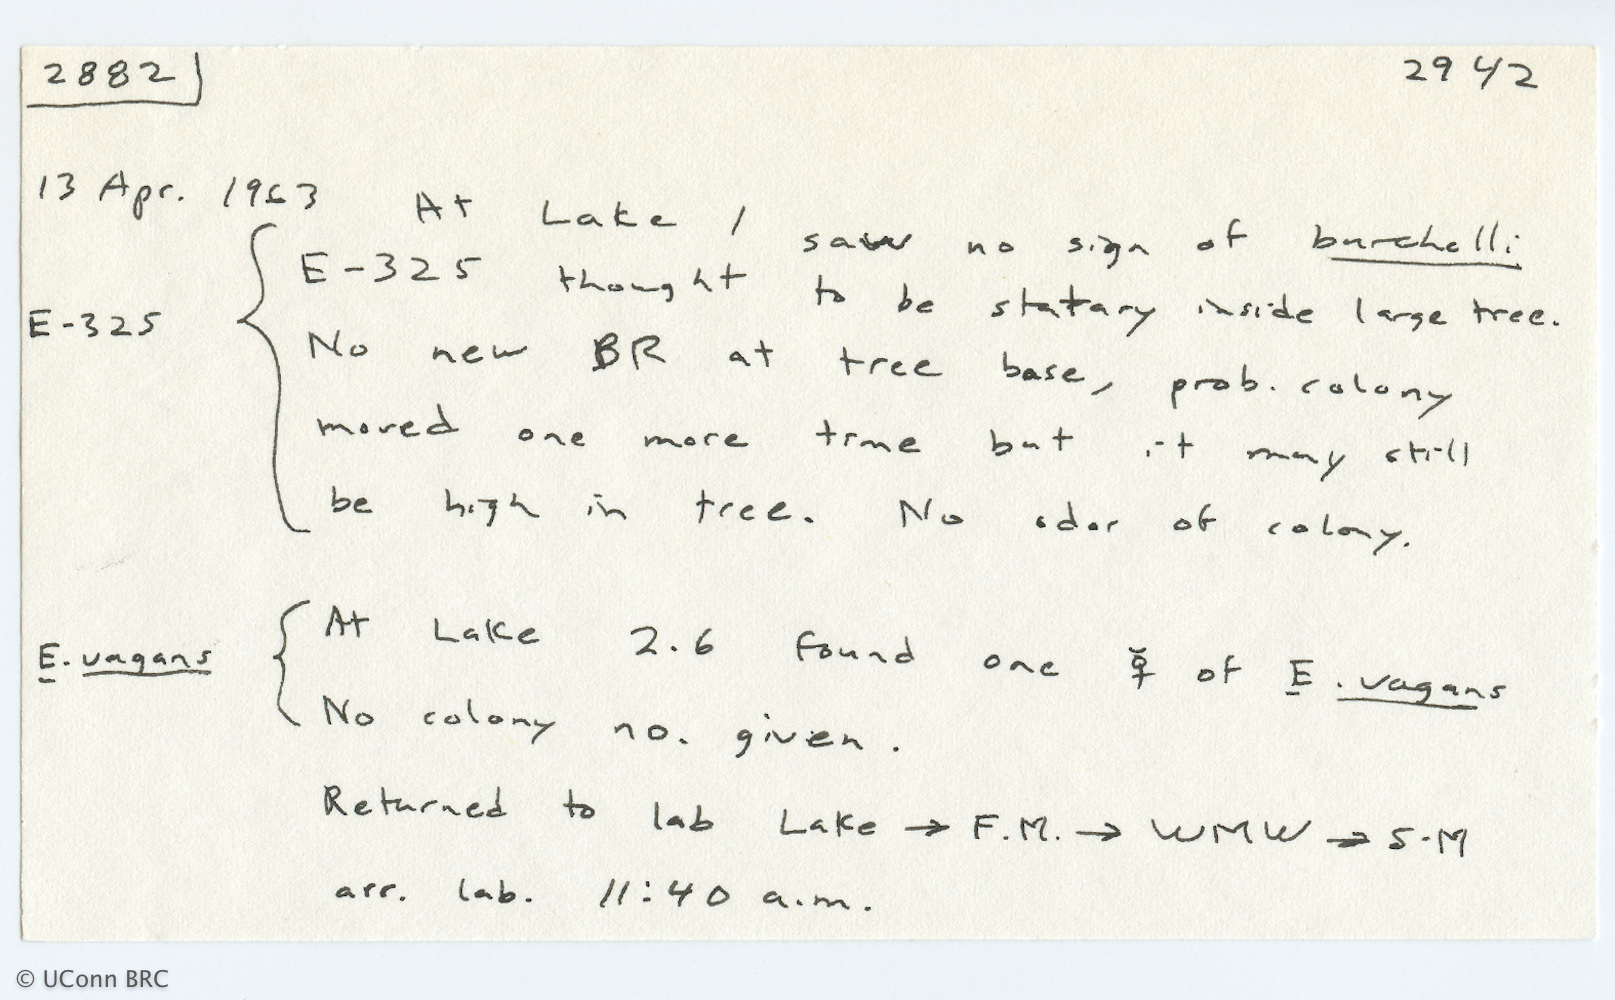 2882
2942
13 Apr. 1963 At Lake 1 saw no sign of burchelli
E-325 thought to be statary inside large tree.
E-325
No new BR at tree base, prob. colony
moved one more time but it may still
be high in tree. No odor of colony.
At Lake 2.6 found one ☿ of E. vagans
E. vagans
No colony no. given.
Returned to lab Lake → F.M. → WMW → S-M
arr. lab. 11:40 a.m.
© UConn BRC